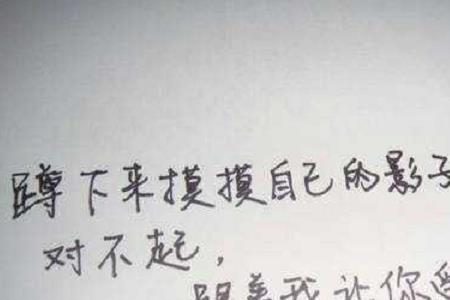 蹲下来摸摸自己的影子
对不起，
跟着我让你受